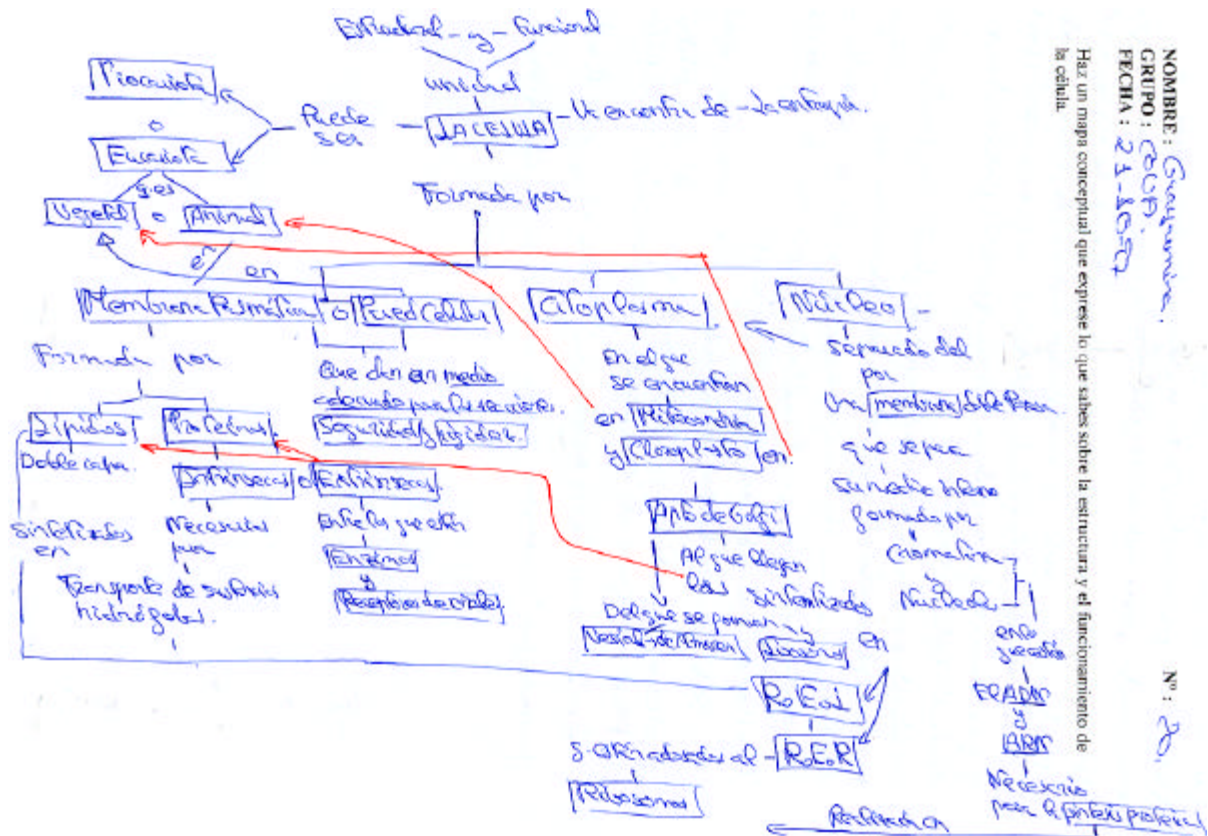 NOMBRE :
GRUPO : COUA.
FECHA : 21-10-97
Nº : 20.
Haz un mapa conceptual que exprese lo que sabes sobre la estructura y el funcionamiento de
la célula.
Estructural - y - funcional
unidad
LA CELULA
Puede
ser
Procariota
o
Eucariota
Vegetal o Animal
en
en
Formada por
Membrana Plasmática o Pared Celular
Citoplasma
Núcleo
Formada por
Lípidos
Doble capa.
Proteínas
sintetizados
en
Intrínsecas o Extrínsecas
Necesarias
para
Transporte de sustancias
hidrófobas.
Entre las que están
Enzimas
y
Que dan un medio
adecuado para las reacciones.
Seguridad y rigidez.
En el que
se encuentran
en Mitocondria
y Cloroplasto en
Apto de Golgi
Al que llegan
sintentizados
en
Del que se forman
y
R.E.L
R.E.R
al
Ribosomas
separado del
por
una membrana doble
que separa
su medio interno
formado por
Cromatina
y
Nucleolo
en los
que están
El ADN
y
ARN
Necesario
para la síntesis proteica
Realizada en